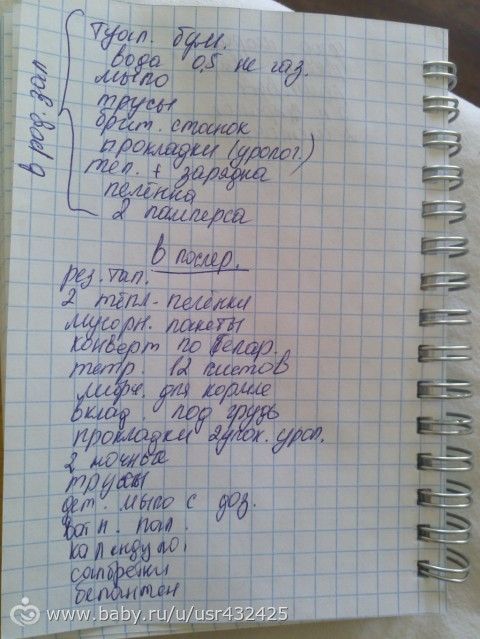 в род. зал
туал. бум.
вода 0,5 не газ.
мыло
трусы
брит. станок
прокладки (уролог.)
тел. + зарядка
пелёнка
2 памперса
в послер.
рез. тап.
2 тёпл. пелёнки
мусорн. пакеты
конверт по
тетр. 12 листов
лифч. для кормле
вклад. под грудь
прокладки 2 упак. урол.
2 ночные
трусы
дет. мыло с доз.
ватн. пал.
календула
салфетки
бепантен
www.baby.ru/u/usr432425